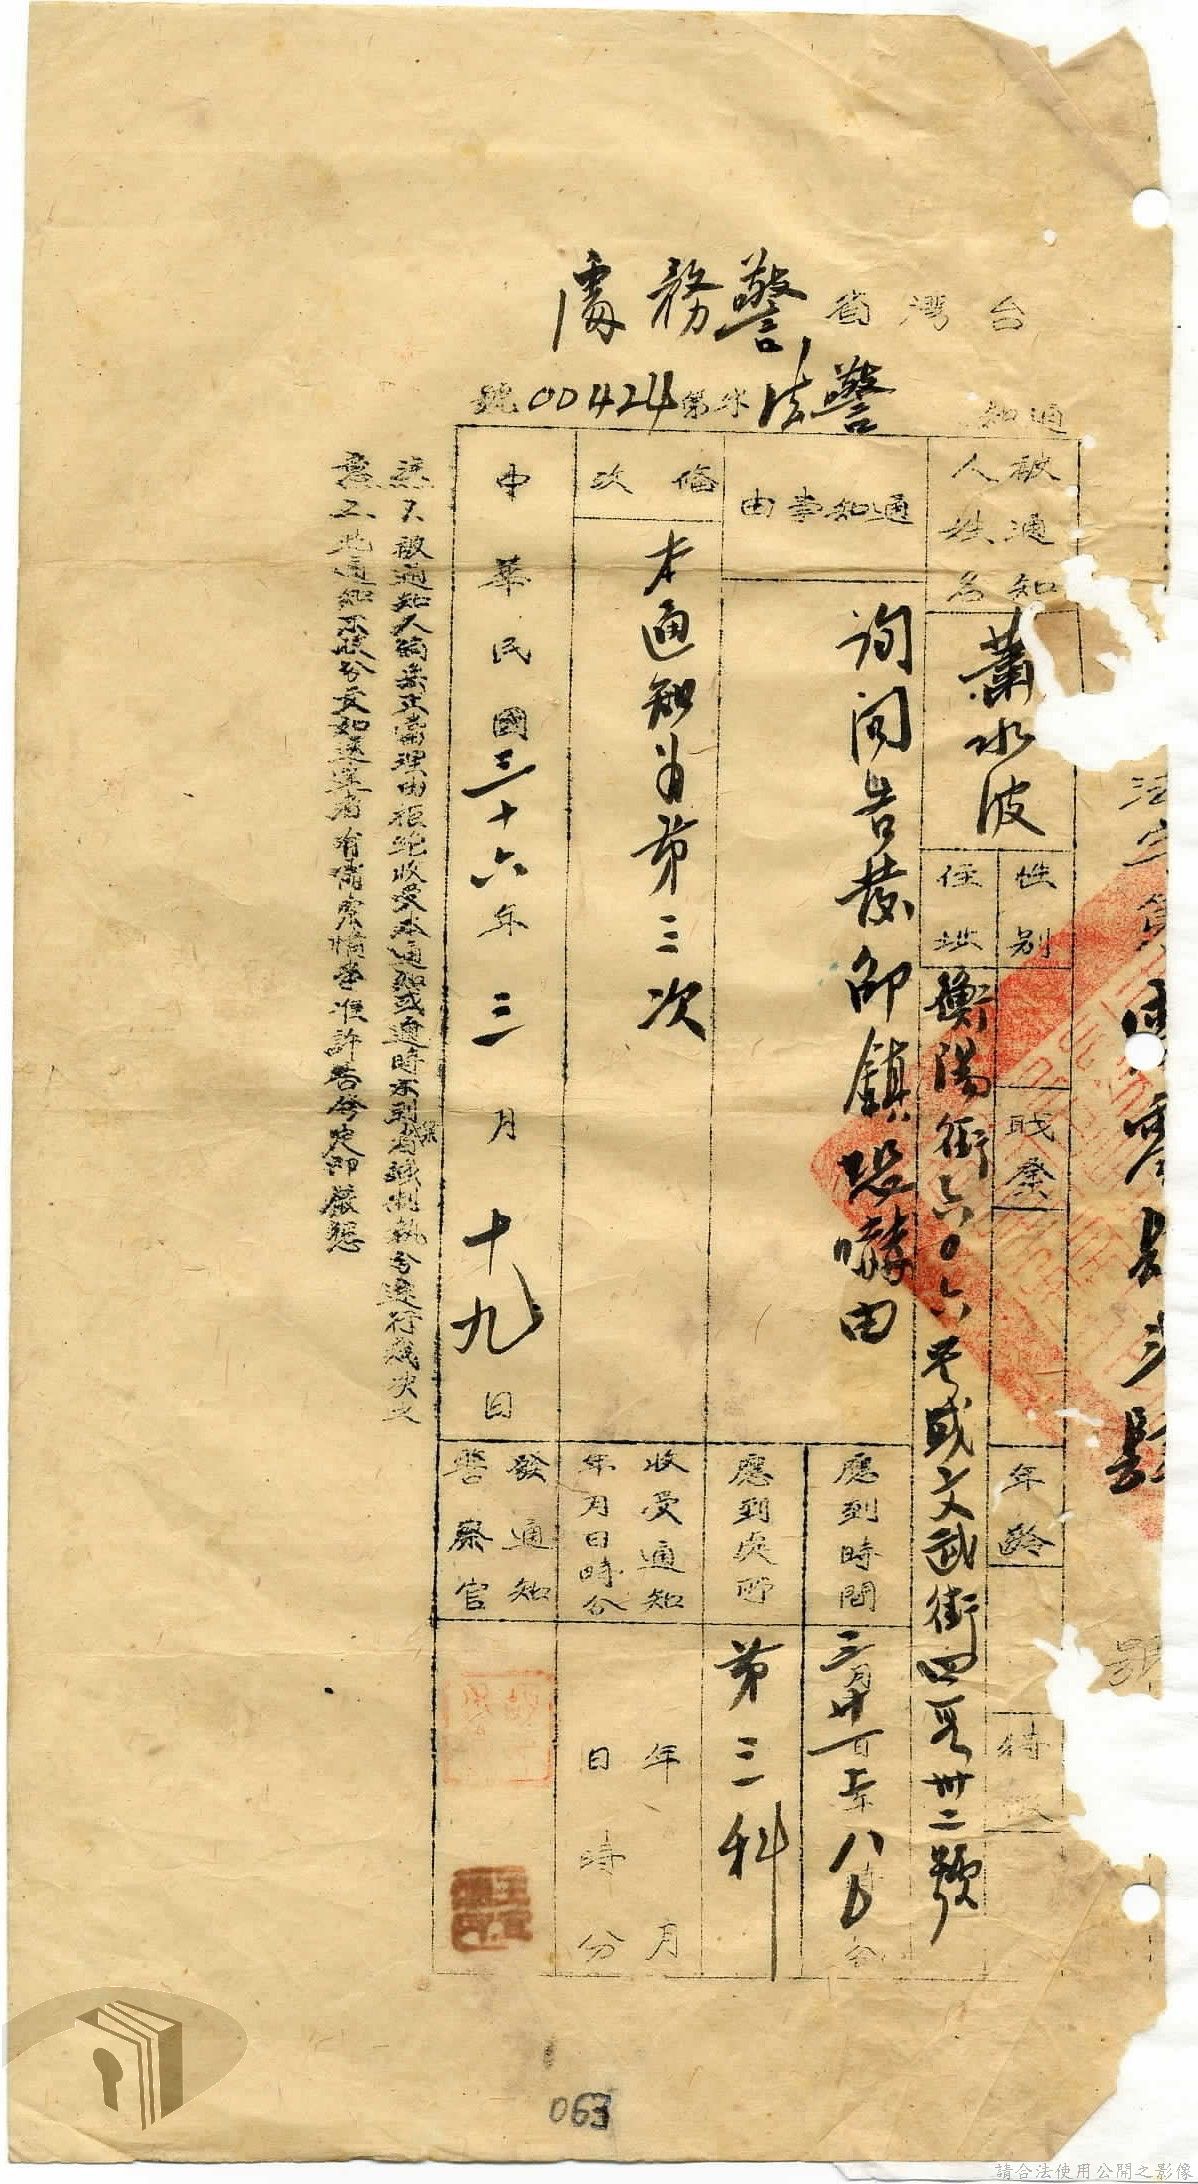 台灣省警務處
通知
警法字第00424號
被通知人姓名
蕭水波
性別
職業
年齡
特徵
住址
衡陽街六〇六号或文武街四号卅二號
通知事由
詢問告發邵鎮恐嚇由
應到時間
三月廿一日上午八時
應到處所
第三科
備攷
本通知為第三次
收受通知年月日時分
年月日時分
中華民國三十六年三月十九日
發通知警察官
注 1.被通知人倘無正當理由拒絕收受本通知或逾時不到者強制執行逕行裁決之
意 2.此通知不收分文如送達者有需索情事准許告發定即嚴懲
063
請合法使用公開之影像